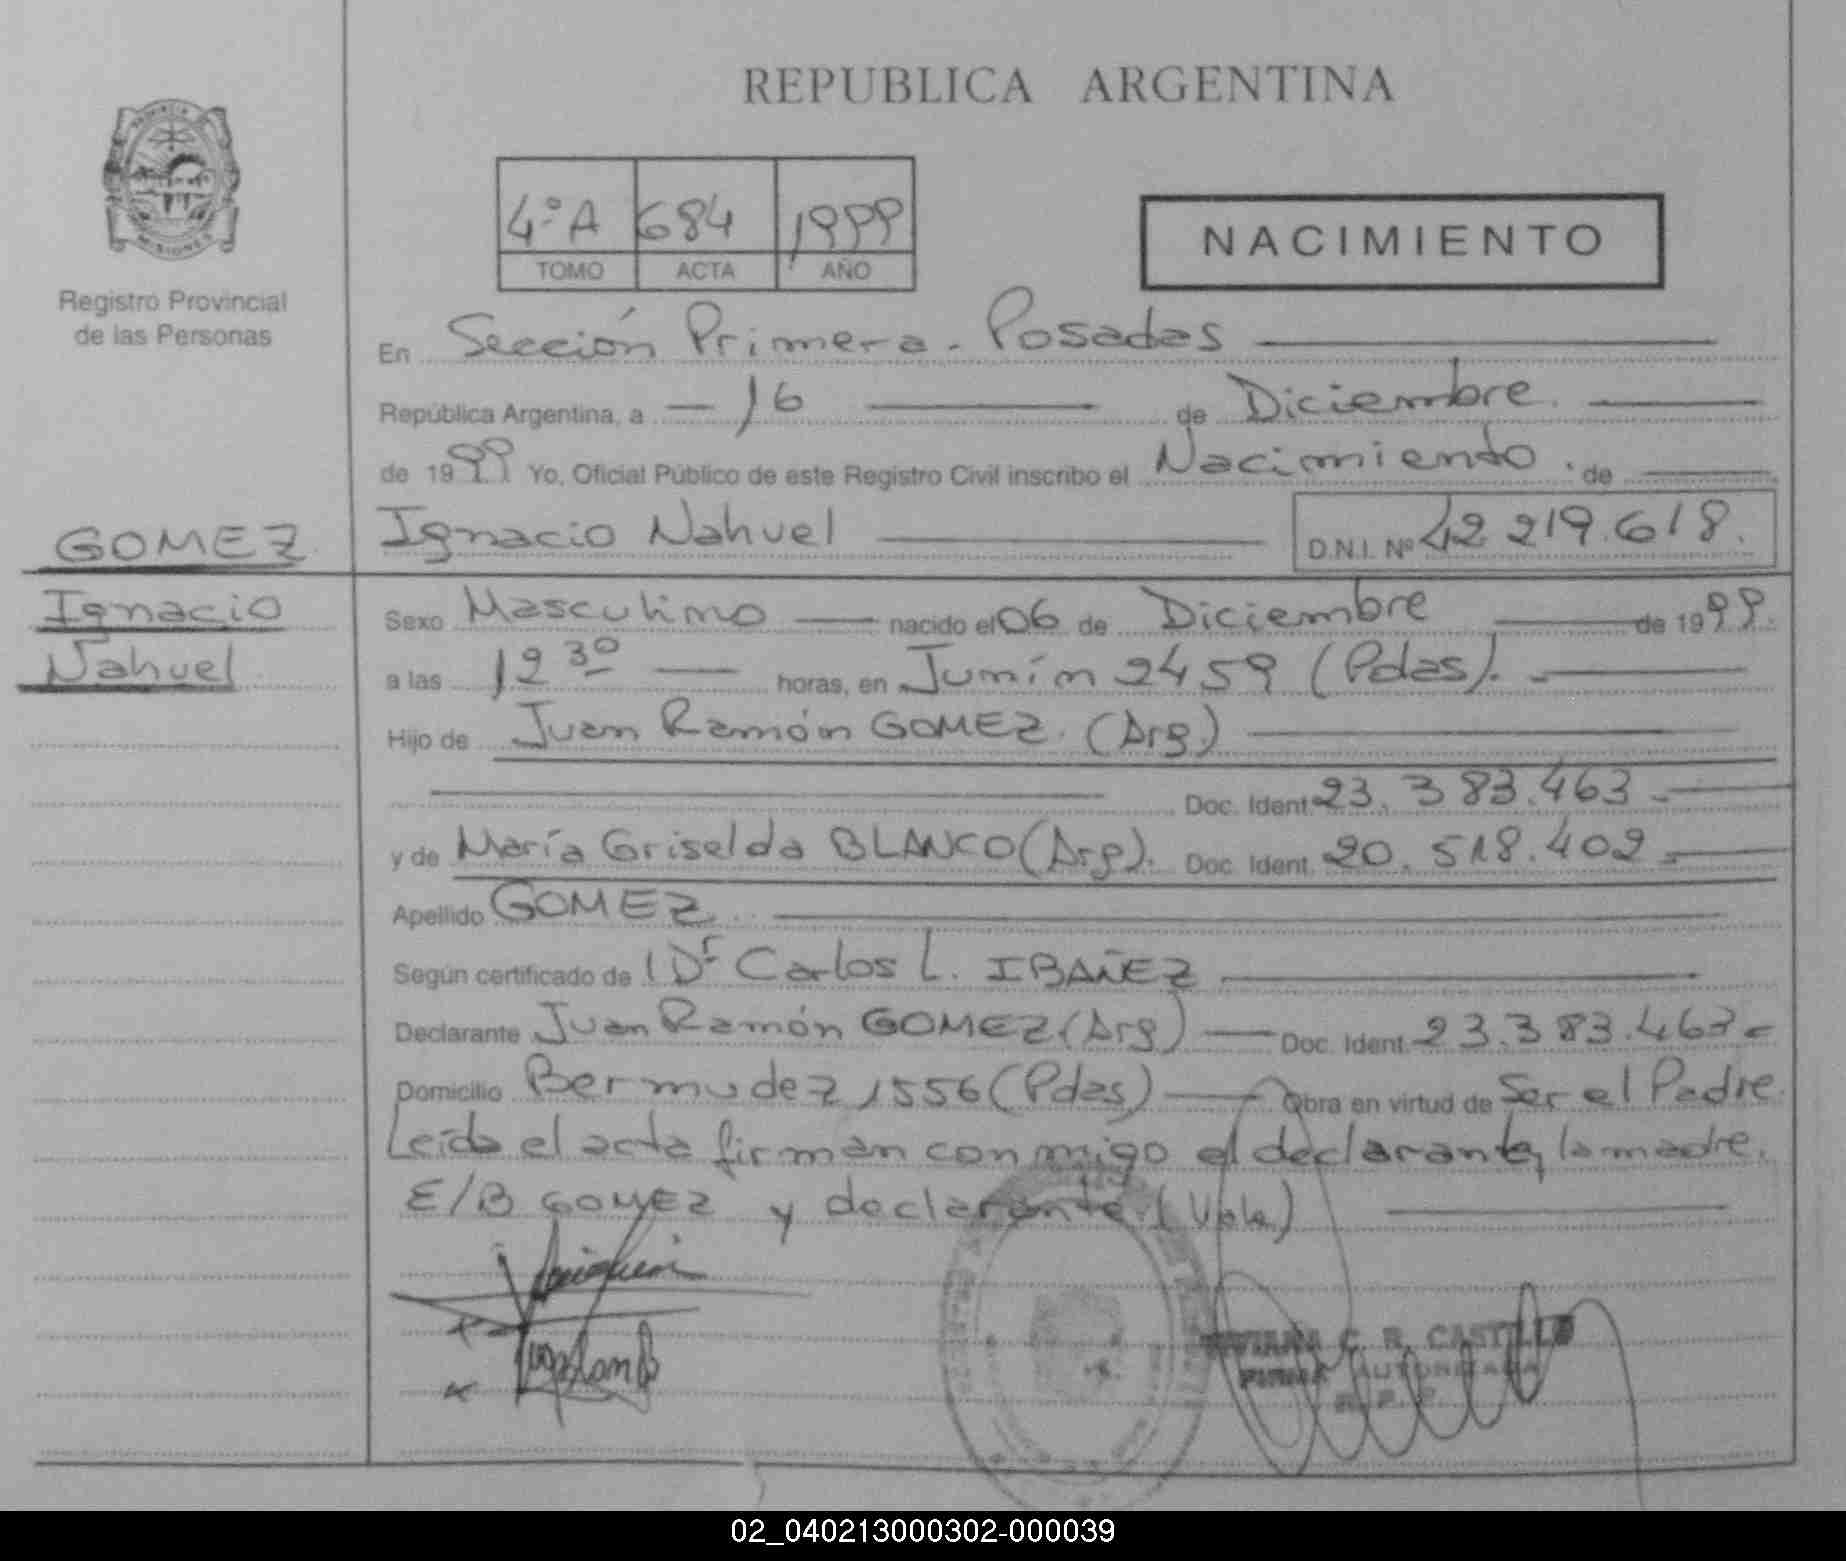 REPUBLICA ARGENTINA
PROVINCIA
MISIONES
Registro Provincial
de las Personas
4º A 684 1999
TOMO ACTA AÑO
NACIMIENTO
En Sección Primera - Posadas
República Argentina, a 16 de Diciembre
de 1999 Yo, Oficial Público de este Registro Civil inscribo el Nacimiento. de
GOMEZ
Ignacio Nahuel
Ignacio Nahuel D.N.I. Nº 42.219.618.
Sexo Masculino nacido el 06 de Diciembre de 1999.
a las 12 30 horas, en Junín 2459 (Pdas).
Hijo de Juan Ramón GOMEZ. (Arg.)
Doc. Ident. 23.383.463
y de María Griselda BLANCO (Arg). Doc. Ident. 20.518.402
Apellido GOMEZ
Según certificado de Dr Carlos L. IBAÑEZ
Declarante Juan Ramón GOMEZ (Arg) Doc. Ident. 23.383.463
Domicilio Bermudez 1556 (Pdas) Obra en virtud de Ser el Padre.
Leída el acta firman conmigo el declarante, la madre.
E/B GOMEZ y declarante. (Vale)
VIVIANA C. R. CASTILLO
FIRMA AUTORIZADA
R. P. P.
02_040213000302-000039